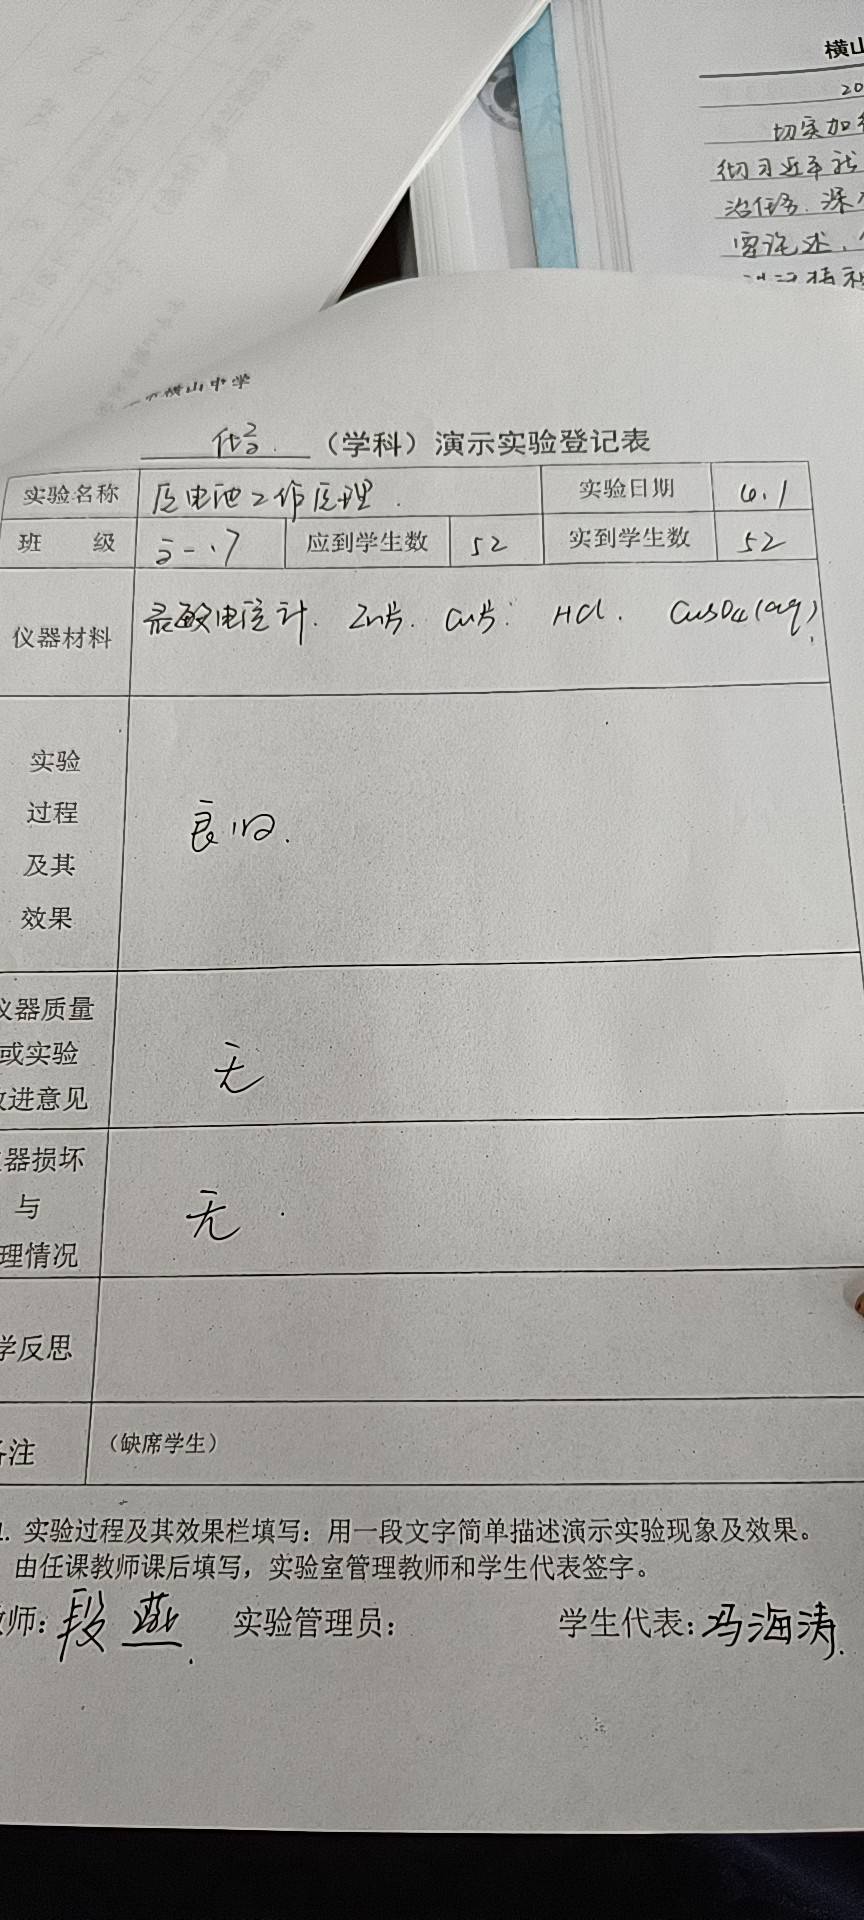 横山
20
切实加
彻习近平新
治任务.深
要论述、
横山中学
化学.（学科）演示实验登记表
实验名称 原电池工作原理. 实验日期 6.1
班 级 应到学生数 52 实到学生数 52
仪器材料 灵敏电流计. Zn片. Cu片. HCl. CuSO4(aq)
实验
过程
及其
效果
良好.
仪器质量
或实验
改进意见
无
器损坏
与
理情况
无.
学反思
备注 （缺席学生）
1. 实验过程及其效果栏填写：用一段文字简单描述演示实验现象及效果。
由任课教师课后填写，实验室管理教师和学生代表签字。
教师: 段燕. 实验管理员: 学生代表: 冯海涛.